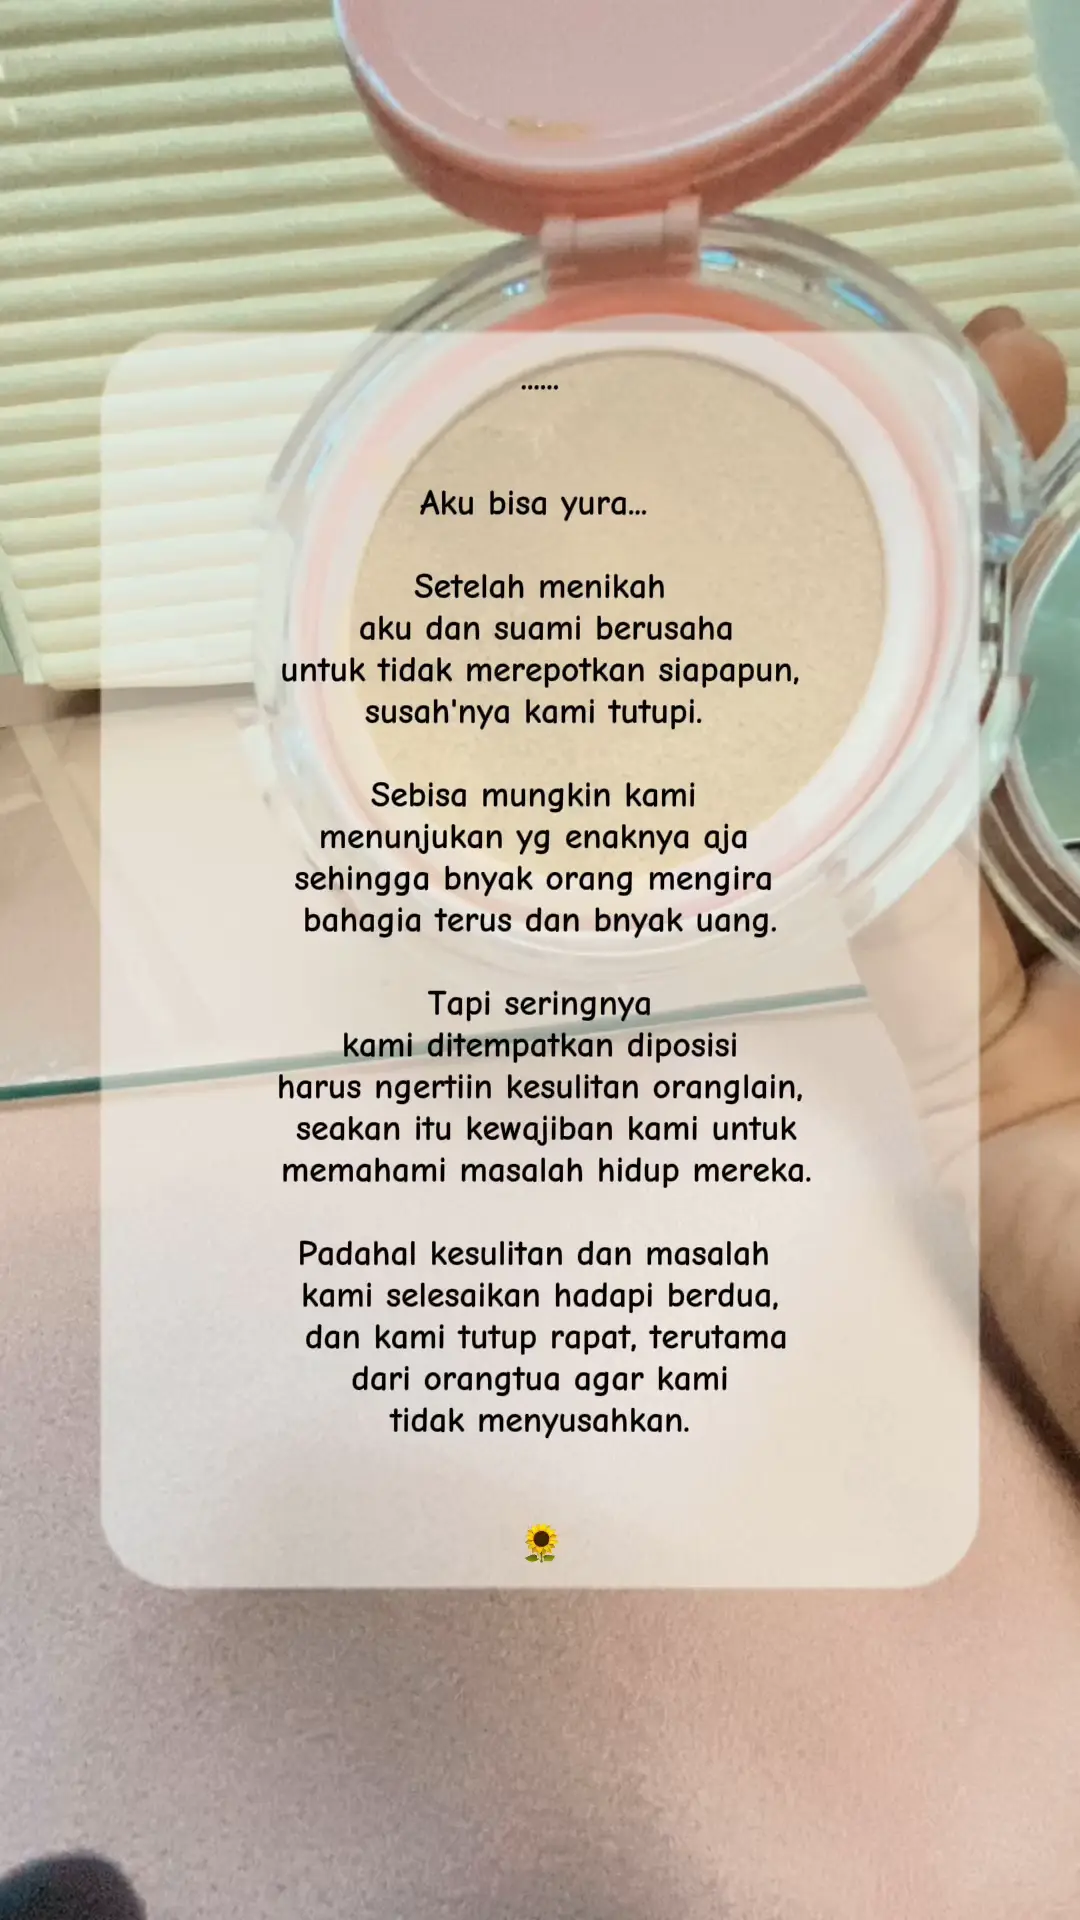 ......
Aku bisa yura...
Setelah menikah
aku dan suami berusaha
untuk tidak merepotkan siapapun,
susah'nya kami tutupi.
Sebisa mungkin kami
menunjukan yg enaknya aja
sehingga bnyak orang mengira
bahagia terus dan bnyak uang.
Tapi seringnya
kami ditempatkan diposisi
harus ngertiin kesulitan oranglain,
seakan itu kewajiban kami untuk
memahami masalah hidup mereka.
Padahal kesulitan dan masalah
kami selesaikan hadapi berdua,
dan kami tutup rapat, terutama
dari orangtua agar kami
tidak menyusahkan.
🌻